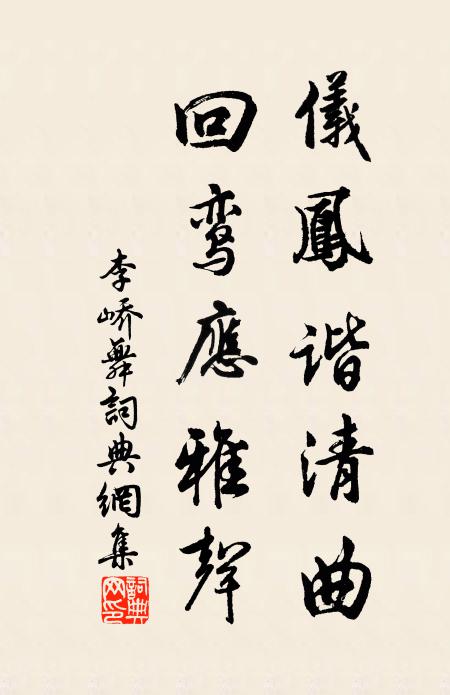 儀鳳谐清曲
回鸾應雅聲
李嶠舞詞典網集
詞典网印